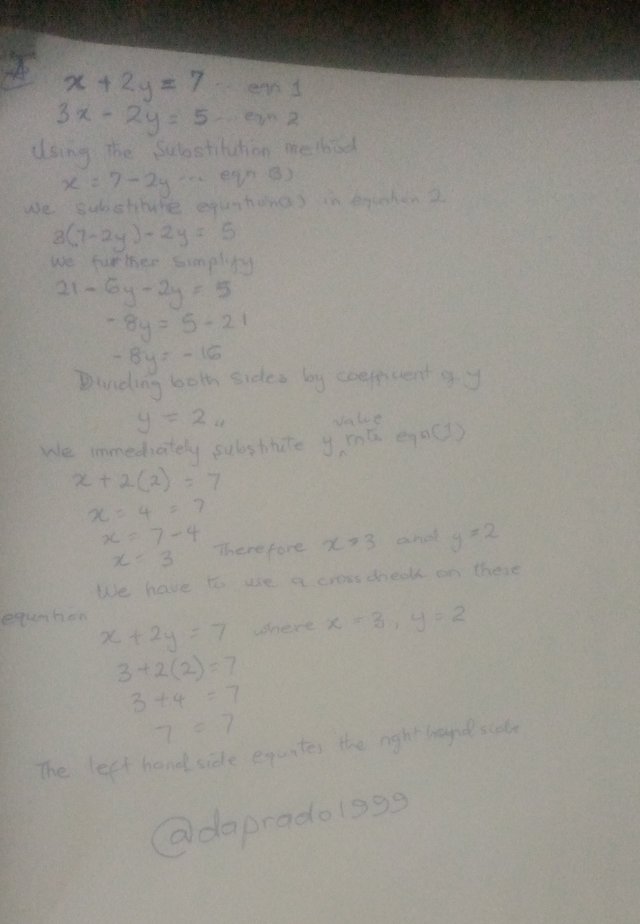 x + 2y = 7 ... eqn 1
3x - 2y = 5 ... eqn 2
Using the Substitution method
x = 7 - 2y ... eqn 3)
We substitute equation(3) in equation 2
3(7-2y) - 2y = 5
We further simplify
21 - 6y - 2y = 5
- 8y = 5 - 21
- 8y = - 16
Dividing both sides by coefficient of y
y = 2 "
value
We immediately substitute y ^ into eqn(1)
x + 2(2) = 7
x = 4 = 7
x = 7 - 4
x = 3 Therefore x = 3 and y = 2
We have to use a cross check on these
equation
x + 2y = 7 where x = 3, y = 2
3 + 2(2) = 7
3 + 4 = 7
7 = 7
The left hand side equates the right hand side
@daprado1999